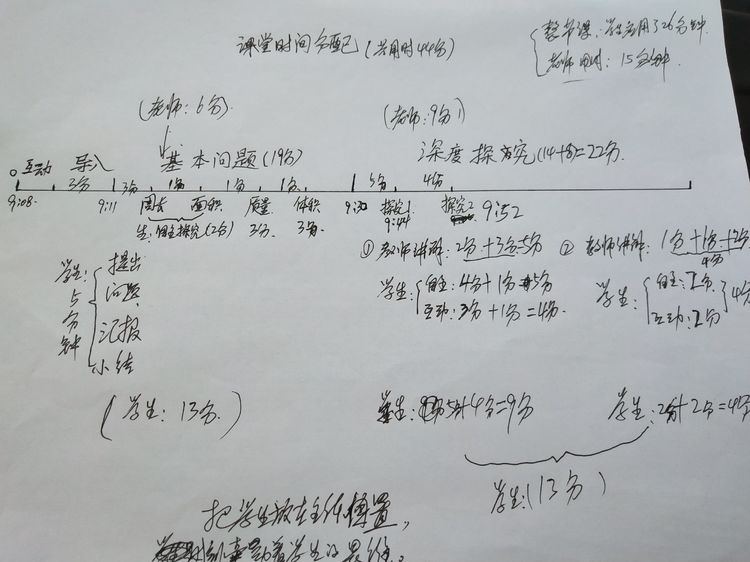 课堂时间分配(共用时44分)
整节课:学生应用了26分钟
老师用时:15分钟
(老师:6分)
(老师:9分)
互动 导入
基本问题(19分)
深度探究(14+8)=22分
3分 3分 1分 1分 1分 5分 4分
9:08 9:11 周长 面积 质量 体积 9:30 探究1 9:44 探究2 9:52
生:自主探究(2分) 3分 3分
学生:5分钟
提出
问题
汇报
小结
①教师讲解:2分+3分=5分
学生:
自主:4分+1分=5分
互动:3分+1分=4分
②教师讲解:1分+1分+2分
4分
学生:
自主:2分
互动:2分
4分
(学生:13分)
学生:5分+4分=9分
学生:2分+2分=4分
学生:(13分)
把学生放在主体位置,
着学生的思维。